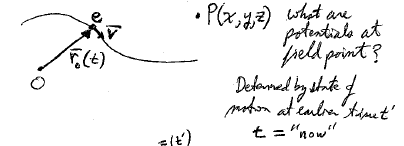 e
v̄
r̄₀(t)
O
• P(x,y,z) what are
potentials at
field point?
Determined by state of
motion at earlier time t'
t = "now"
=(t')